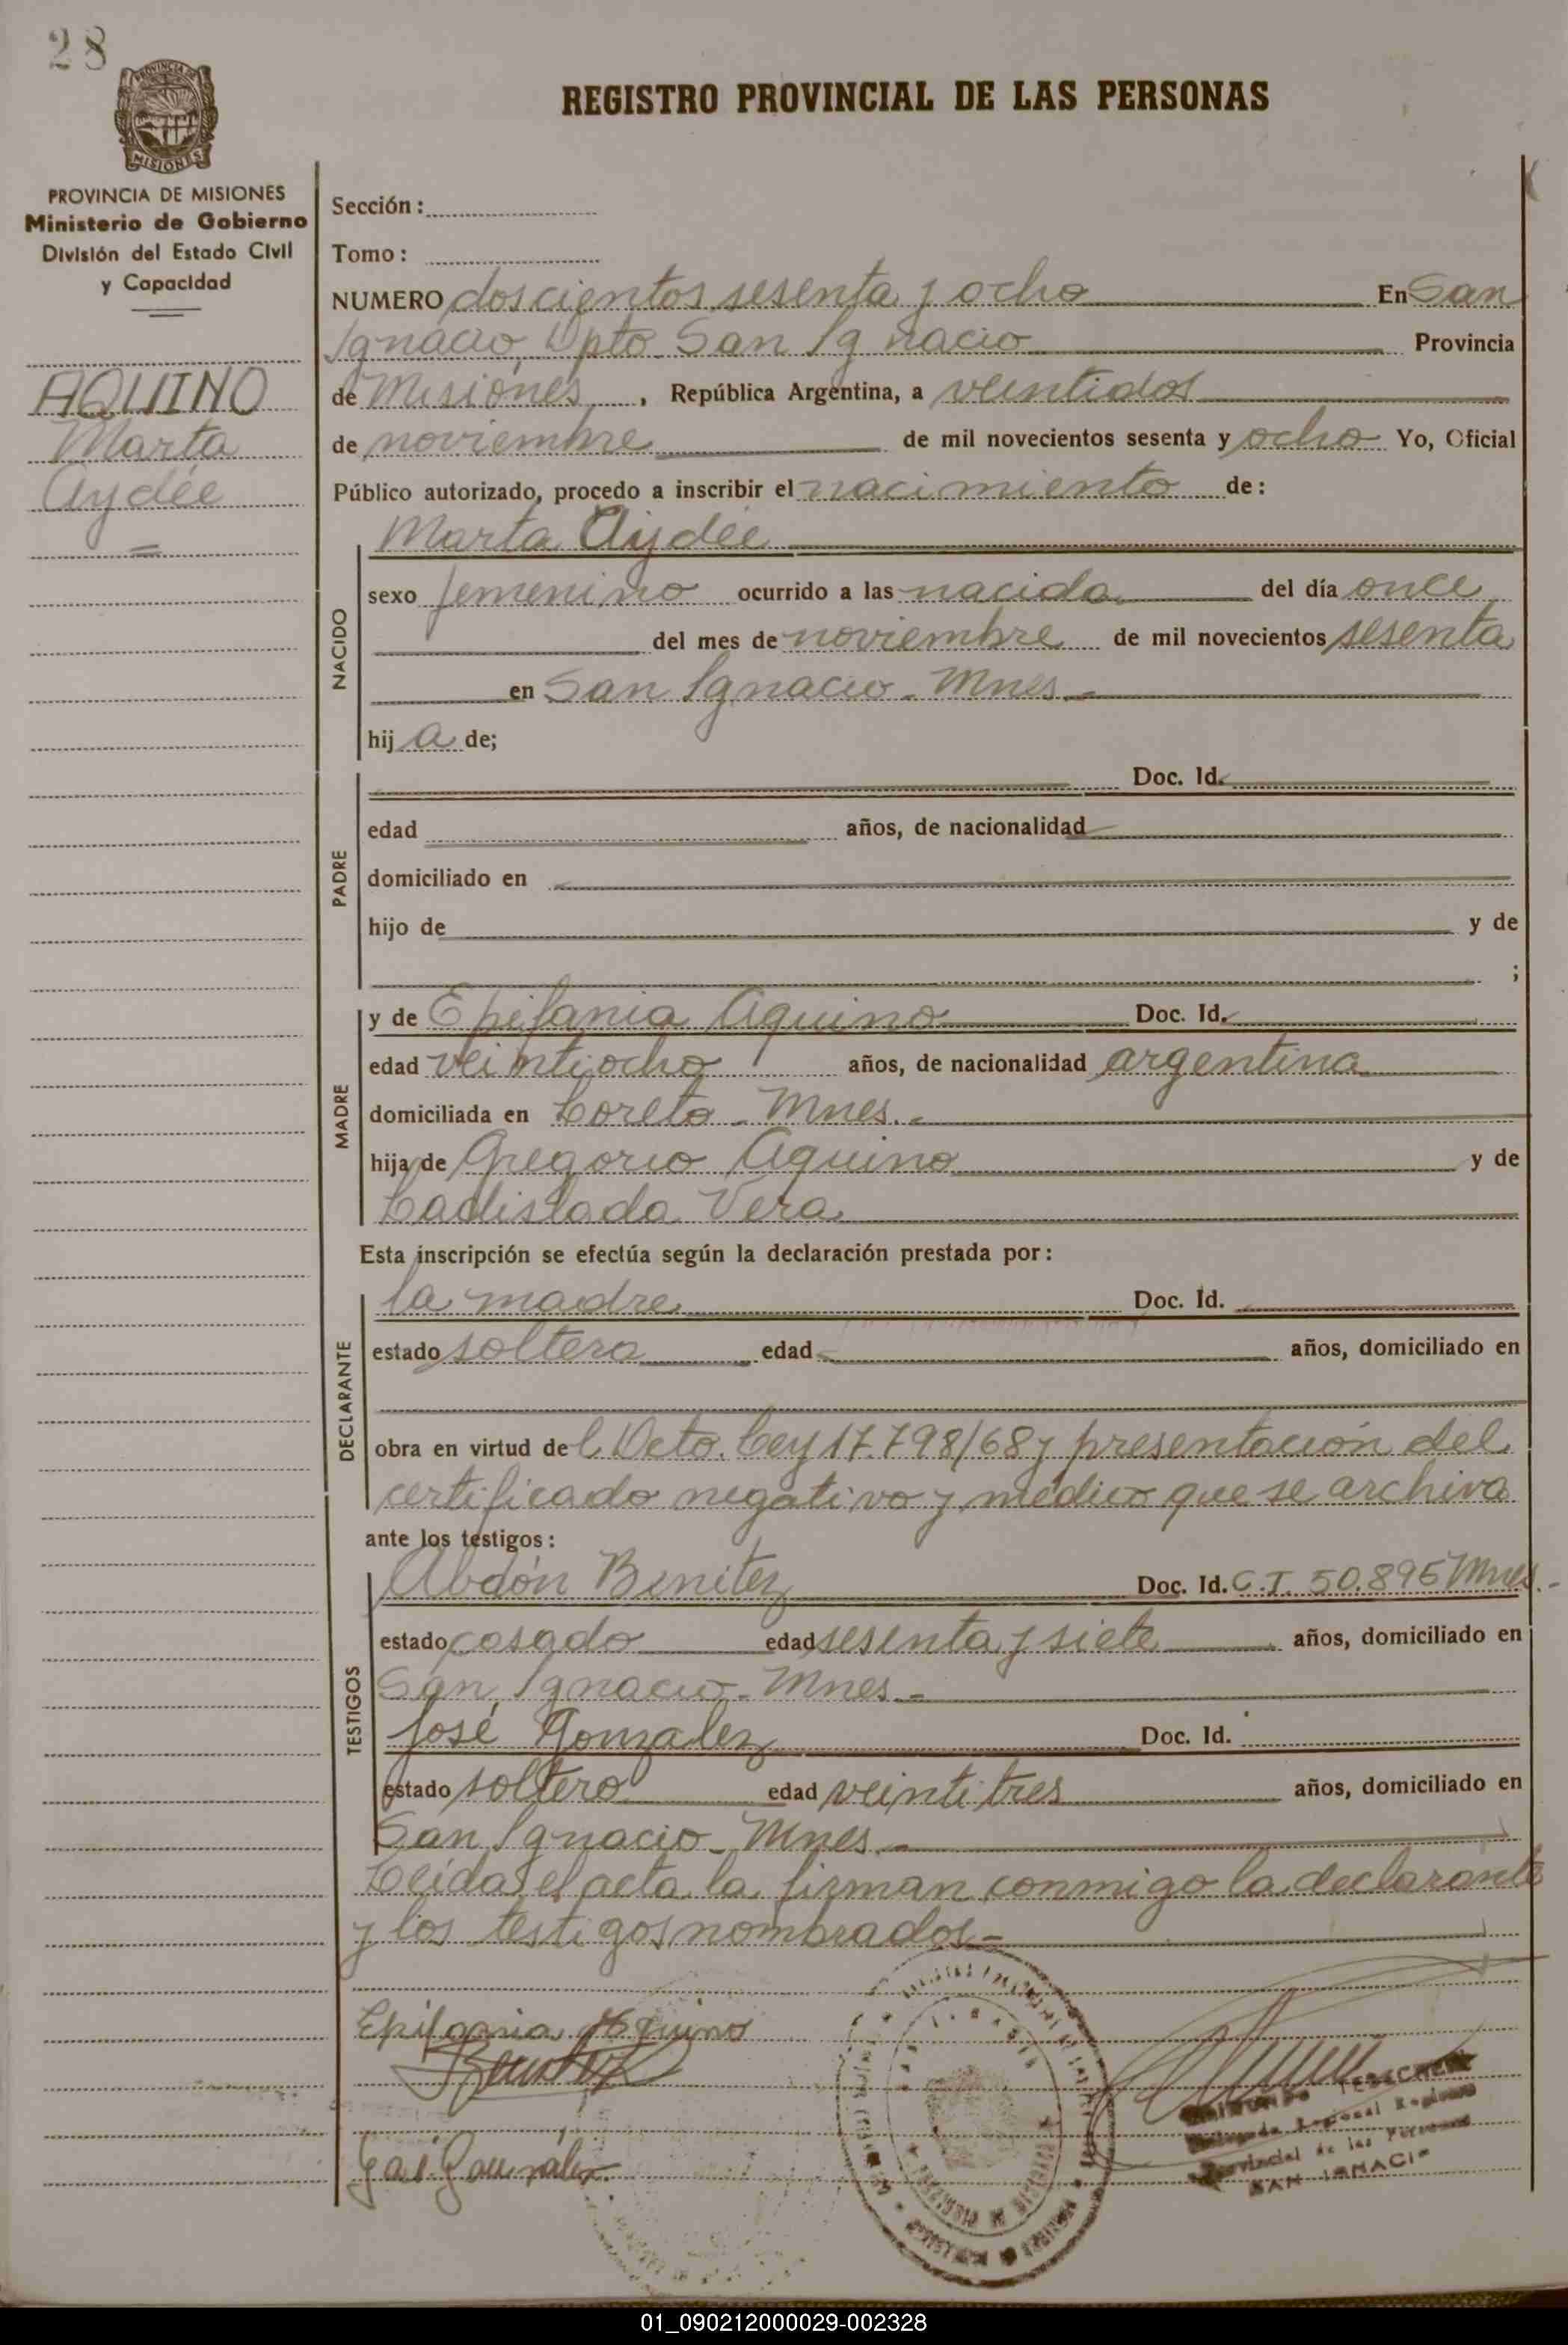 28
PROVINCIA DE
MISIONES
REGISTRO PROVINCIAL DE LAS PERSONAS
PROVINCIA DE MISIONES
Ministerio de Gobierno
División del Estado Civil
y Capacidad
AQUINO
Marta
Aydée
Sección:
Tomo:
NUMERO doscientos sesenta y ocho En San
Ignacio, Dpto. San Ignacio Provincia
de Misiones, República Argentina, a veintidos
de noviembre de mil novecientos sesenta y ocho Yo, Oficial
Público autorizado, procedo a inscribir el nacimiento de:
NACIDO
Marta Aydée
sexo femenino ocurrido a las nacida del día once
del mes de noviembre de mil novecientos sesenta
en San Ignacio - Mnes.-
hij a de;
PADRE
Doc. Id.
edad años, de nacionalidad
domiciliado en
hijo de y de
;
MADRE
y de Epifania Aquino Doc. Id.
edad veintiocho años, de nacionalidad argentina
domiciliada en Loreto - Mnes.-
hija de Gregorio Aquino y de
Ladislada Vera
Esta inscripción se efectúa según la declaración prestada por:
DECLARANTE
la madre Doc. Id.
estado soltera edad años, domiciliado en
obra en virtud del Dcto. Ley 17.798/68 y presentación del
certificado negativo y médico que se archiva
ante los testigos:
TESTIGOS
Abdón Benitez Doc. Id. C.I. 50.895 Mnes.-
estado casado edad sesenta y siete años, domiciliado en
San Ignacio - Mnes.-
José Gonzalez Doc. Id.
estado soltero edad veintitres años, domiciliado en
San Ignacio - Mnes.-
Leída el acta la firman conmigo la declarante
y los testigos nombrados.-
Epifania Aquino
José González
Regional
Provincial de las Personas
SAN IGNACIO
01_090212000029-002328